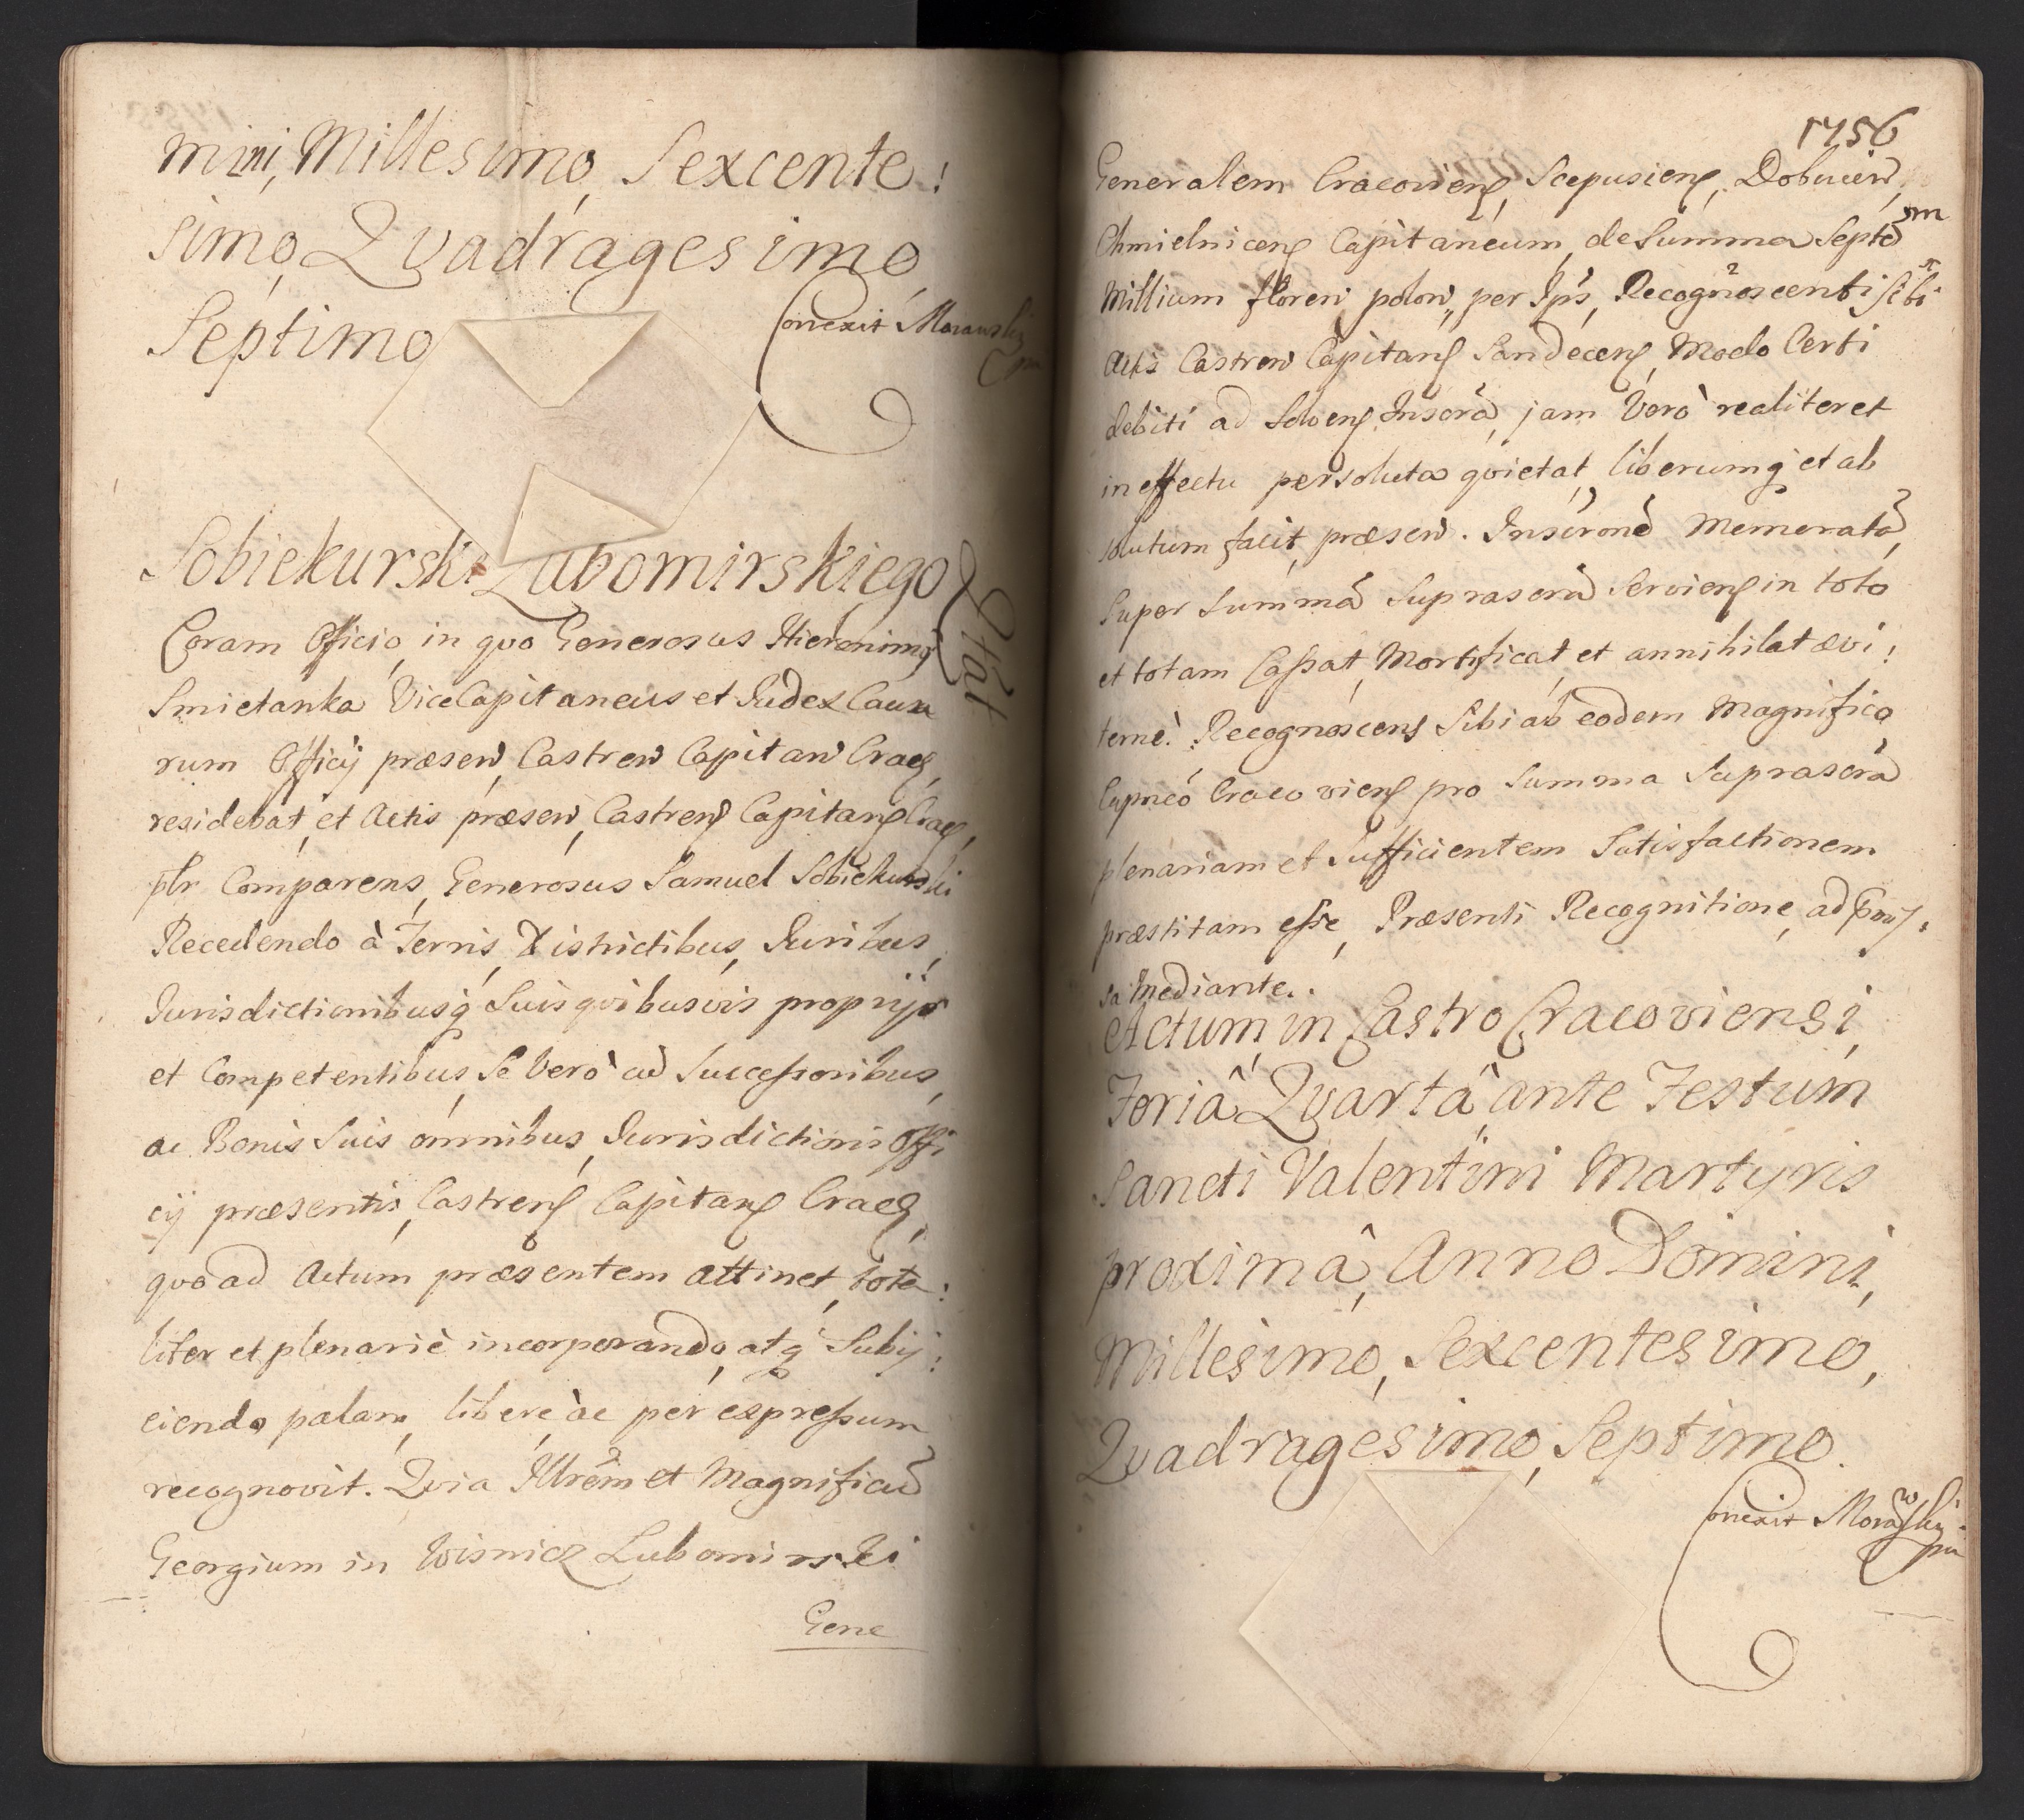 mini, Millesimo, Sexcente:
simo, Qvadragesimo
Septimo
Conexit Morawsky
mp
Sobiekurski Lubomirskiego
Qtat
Coram Officio, in qvo Generosus Hieronimq
Smietanka ViceCapitaneus et Judex Causa
rum Officÿ præsen, Castren Capitan Crac,
residebat, et Actis præsen, Castren Capitan Crac,
ptr Comparens, Generosus Samuel Sobiekurski
Recedendo à Terris, Districtibus, Juribus,
Jurisdictionibusq Suis qvibusvis proprijs
et Competentibus, Se Verò cu Successoribus,
ac Bonis Suis omnibus, Jurisdictioni Offi
cÿ præsentis, Castren Capitan Crac,
qvo ad Actum præsentem attinet, tota:
liter et plenariè incorporando, atq Subij:
ciendo, palam, liberè àc per expressum
recognovit. Qvia Illrem et Magnificu
Georgium in Wisnicz Lubomirski
Gene
1756
Generalem Cracovien, Scepusien, Dobucien,
Chmielnicen Capitaneum, de Summa Septem
Millium floren polon, per Ips, Recognoscenti Sibi
Actis Castren Capitan Sandecen, Modo Certi
debiti ad Solven Inscra, jam Verò realiter et
in effectu persoluta qvietat, liberumq et ab
solutum facit, præsen. Inscrone Memorata,
Super Summa Suprascra Servien in toto
et totam Cassat, Mortificat, et annihilat ævi:
ternè. Recognoscens Sibi ab eodem Magnifico
Capneo Cracovien pro Summa Suprascra
plenariam et Sufficientem Satisfactionem
præstitam esse, Præsenti Recognitione, ad præmis:
sa mediante.
Actum in Castro Cracoviensi,
Feriâ Qvartâ ante Festum
Sancti Valentini Martyris
proximâ, Anno Domini,
Millesimo, Sexcentesimo,
Qvadragesimo, Septimo.
Conexit Morawsky
mp